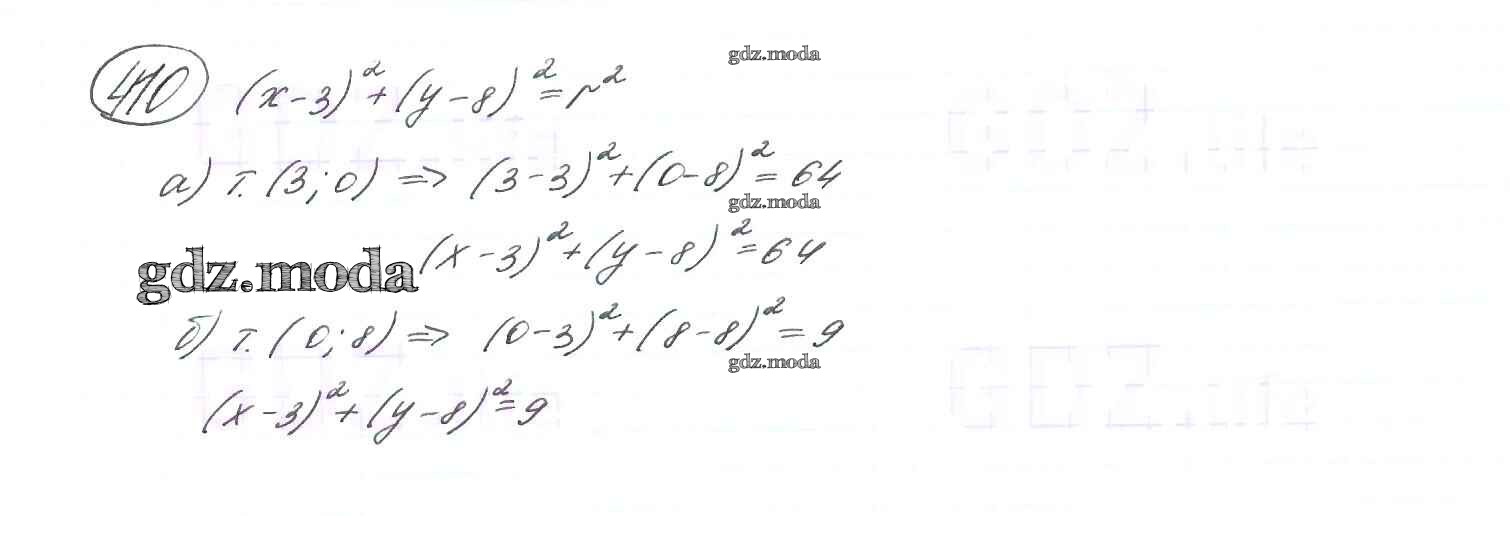 410 (x-3)²+(y-8)²=r²
gdz.moda
а) т. (3;0) => (3-3)²+(0-8)²=64
gdz.moda
gdz.moda (x-3)²+(y-8)²=64
б) т. (0;8) => (0-3)²+(8-8)²=9
gdz.moda
(x-3)²+(y-8)²=9